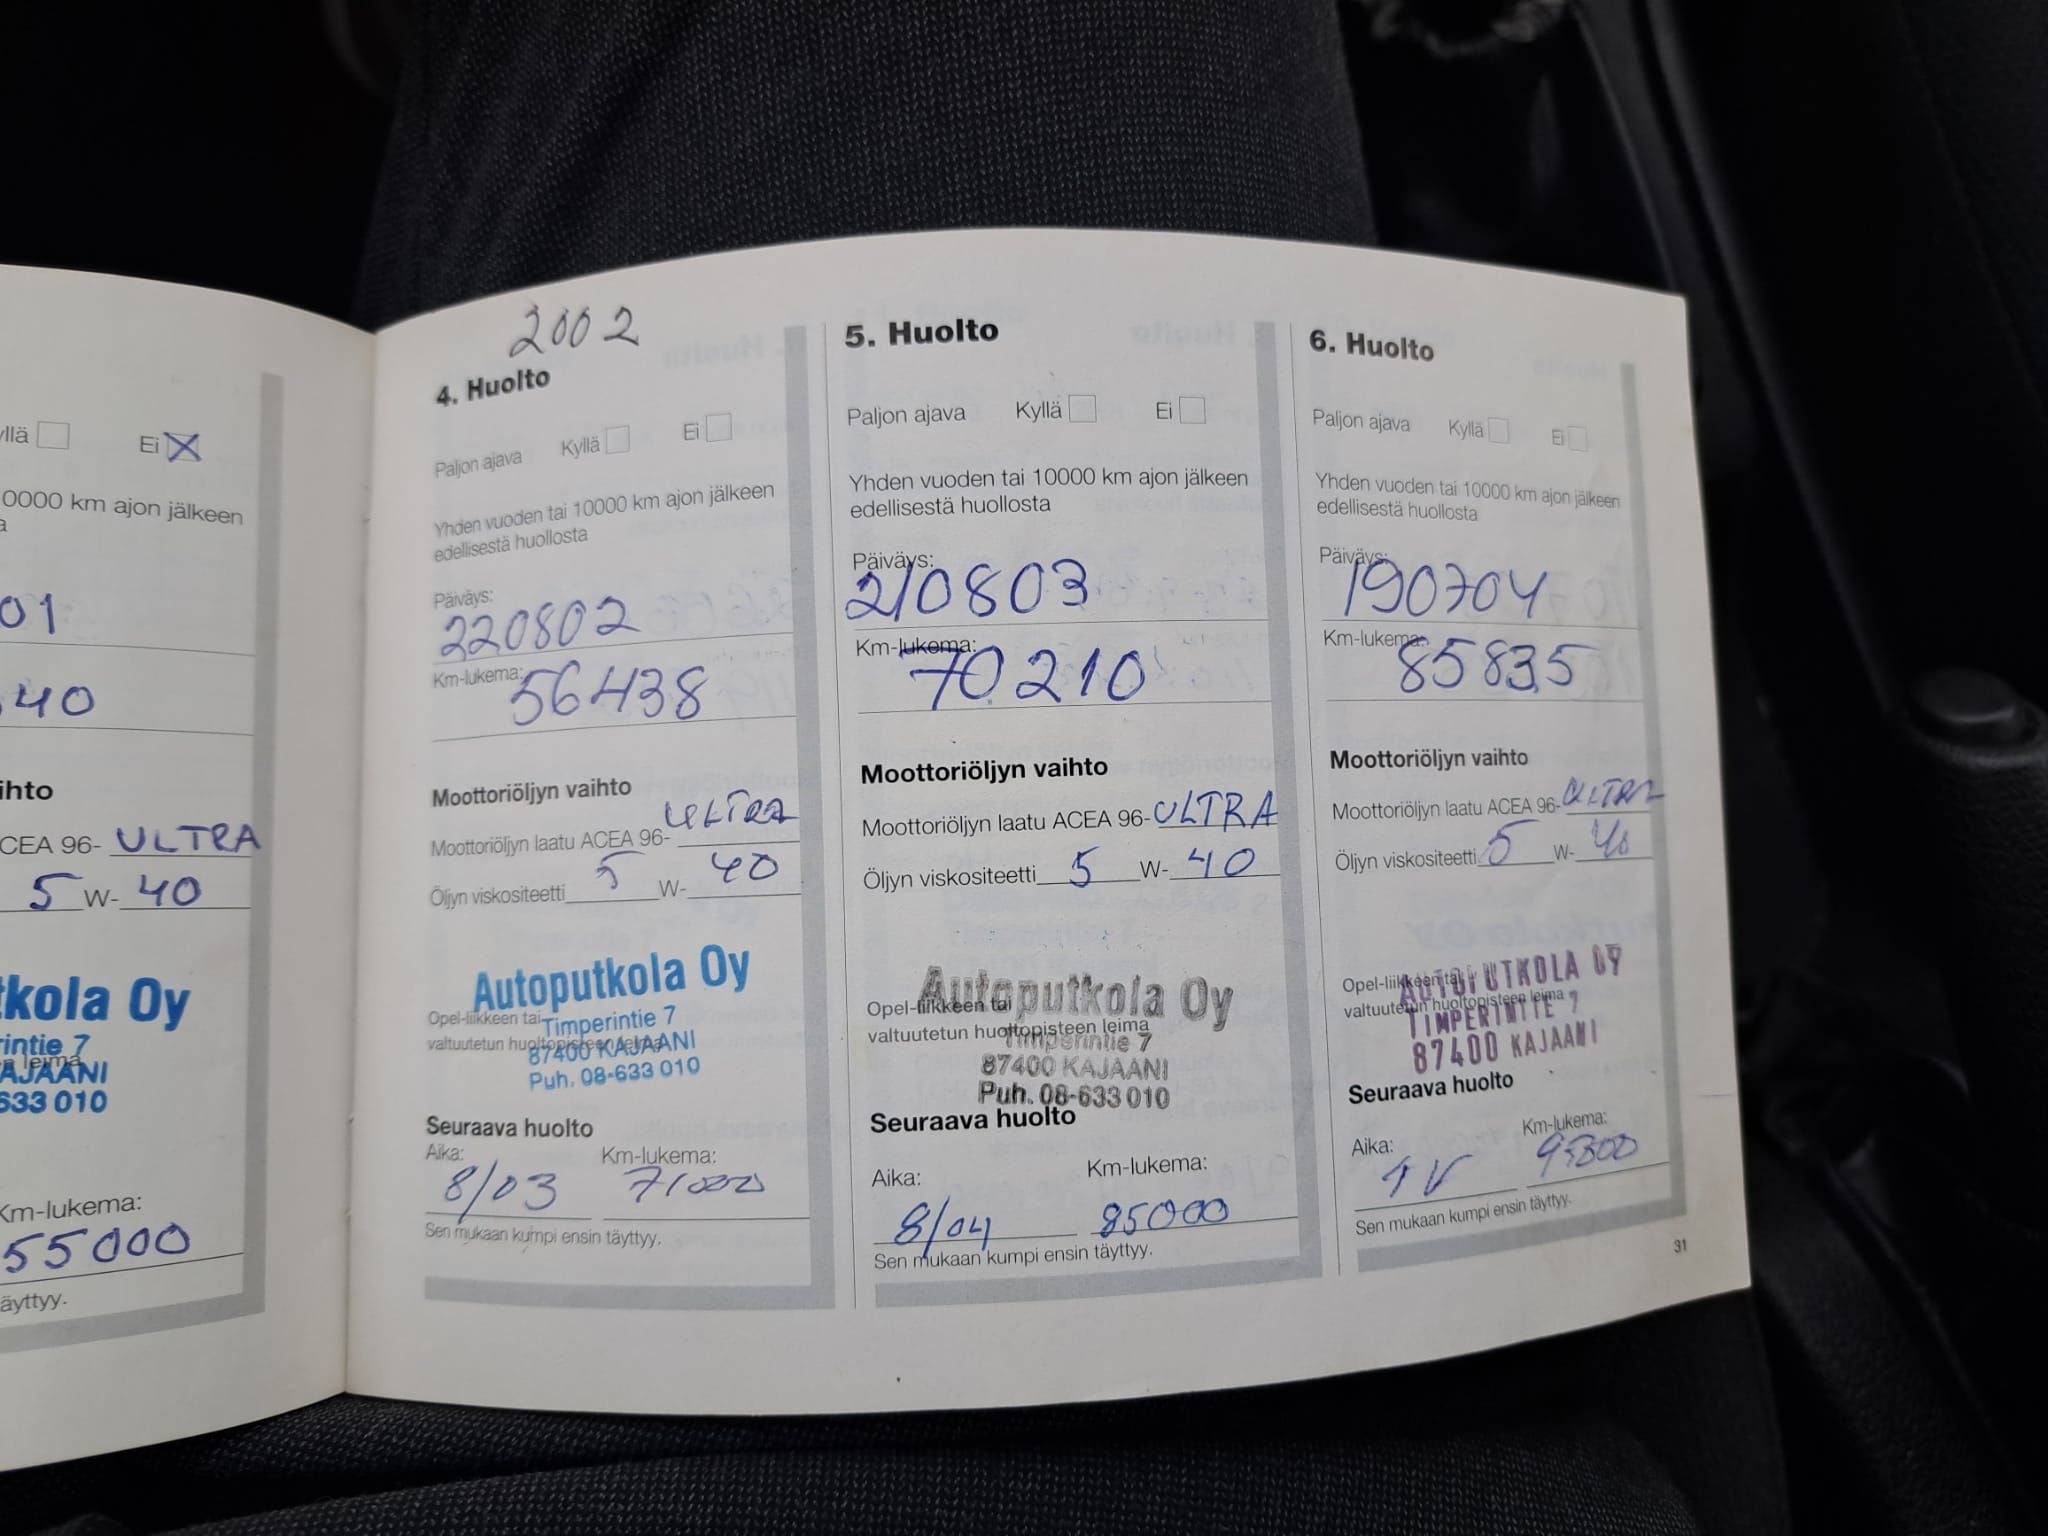 yllä Ei
0000 km ajon jälkeen
a
01
40
ihto
CEA 96- ULTRA
5 W- 40
tkola Oy
rintie 7
en leima
AJAANI
633 010
Km-lukema:
55000
täyttyy.
2002
4. Huolto
Paljon ajava Kyllä Ei
Yhden vuoden tai 10000 km ajon jälkeen
edellisestä huollosta
Päiväys:
220802
Km-lukema:
56438
Moottoriöljyn vaihto
Moottoriöljyn laatu ACEA 96- ULTRA
Öljyn viskositeetti 5 W- 40
Autoputkola Oy
Opel-liikkeen tai
Timperintie 7
valtuutetun huoltopisteen leima
87400 KAJAANI
Puh. 08-633 010
Seuraava huolto
Aika: Km-lukema:
8/03 71000
Sen mukaan kumpi ensin täyttyy.
5. Huolto
Paljon ajava Kyllä Ei
Yhden vuoden tai 10000 km ajon jälkeen
edellisestä huollosta
Päiväys:
210803
Km-lukema:
70210
Moottoriöljyn vaihto
Moottoriöljyn laatu ACEA 96- ULTRA
Öljyn viskositeetti 5 W- 40
Autoputkola Oy
Opel-liikkeen tai
valtuutetun huoltopisteen leima
Timperintie 7
87400 KAJAANI
Puh. 08-633 010
Seuraava huolto
Aika: Km-lukema:
8/04 85000
Sen mukaan kumpi ensin täyttyy.
6. Huolto
Paljon ajava Kyllä Ei
Yhden vuoden tai 10000 km ajon jälkeen
edellisestä huollosta
Päiväys:
190704
Km-lukema:
85835
Moottoriöljyn vaihto
Moottoriöljyn laatu ACEA 96- ULTRA
Öljyn viskositeetti 5 W- 40
AUTOPUTKOLA OY
Opel-liikkeen tai
valtuutetun huoltopisteen leima
TIMPERINTIE 7
87400 KAJAANI
Seuraava huolto
Aika: Km-lukema:
1V
Sen mukaan kumpi ensin täyttyy.
31